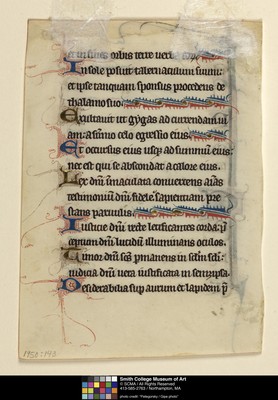 et in fines orbis terre verba eoꝝ
In sole posuit tabernaculum suum:
et ipse tanquam sponsus procedens de
thalamo suo.
Exultauit ut gygas ad currendam ui
am: a sũmo celo egressio eius
Et occursus eius usqꝫ ad summũ eius:
nec est qui se abscondat a calore eius.
Lex dñi ĩmaculata conuertens aĩas
testimoniũ dñi fidele sapientiam pre
stans paruulis.
Iusticie dñi recte letificantes corda: p̃
ceptum dñi lucidũ illuminans oculos.
Timor dñi sc̃s pmanens in sc̃lm sc̃li:
iudicia dñi uera iustificata in semetipsa.
Desiderabilia sup aurum et lapidem p̃
1950:143
Smith College Museum of Art
© SCMA / All Rights Reserved
413-585-2763 / Northampton, MA